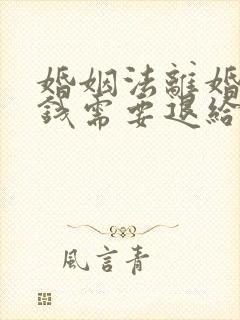 婚姻法離婚
錢需要退給
風言青